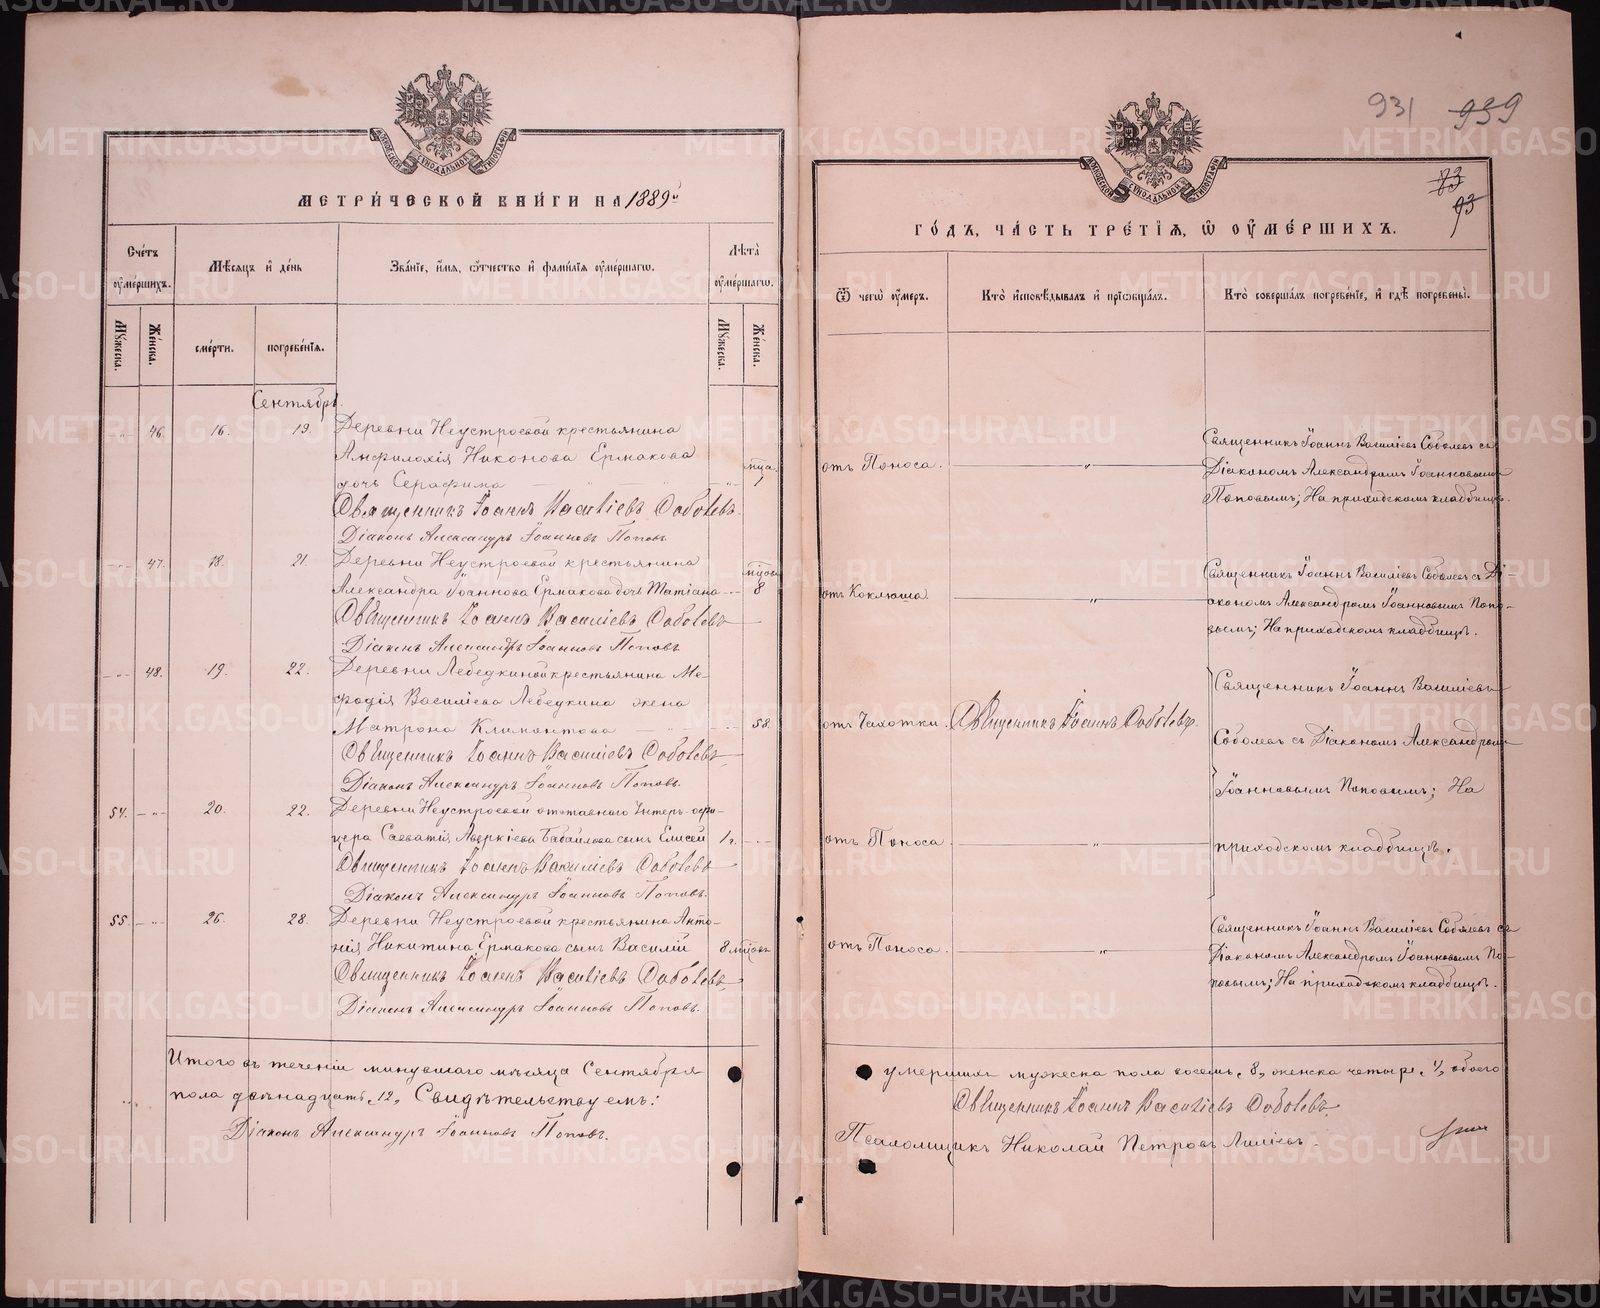 МОСКОВСКОЙ СѴНОДАЛЬНОЙ ТИПОГРАФІИ
МЕТРИ́ЧЕСКОЙ КНИ́ГИ НА 1889й
Сче́тъ оу҆ме́ршихъ.
Мѣ́сяцъ и҆ де́нь
Зва́нїе, и҆́мя, ѻ҆́тчество и҆ фами́лїя оу҆ме́ршагѡ.
Лѣ́та оу҆ме́ршагѡ.
Мꙋ́жеска.
Же́нска.
сме́рти.
погребе́нїя.
Мꙋ́жеска.
Же́нска.
Сентябрь.
-"- 46. 16. 19. Деревни Неустроевой крестьянина
Амфилохія Никонова Ермакова
дочь Серафима
Священникъ Іоаннъ Василіевъ Соболевъ.
Діаконъ Александръ Іоанновъ Поповъ.
-"- 47. 18. 21. Деревни Неустроевой крестьянина
Александра Іоаннова Ермакова дочь Татіана 8
Священникъ Іоаннъ Василіевъ Соболевъ
Діаконъ Александръ Іоанновъ Поповъ.
-"- 48. 19. 22. Деревни Лебедкиной крестьянина Ме-
фодія Василіева Лебедкина жена
Матрона Климантова 58.
Священникъ Іоаннъ Василіевъ Соболевъ
Діаконъ Александръ Іоанновъ Поповъ.
54. -"- 20. 22. Деревни Неустроевой отставнаго Унтеръ-офи-
цера Савватія Аверкіева Бабайлова сынъ Елисей 1 г.
Священникъ Іоаннъ Василіевъ Соболевъ
Діаконъ Александръ Іоанновъ Поповъ.
55. -"- 26. 28. Деревни Неустроевой крестьянина Анто-
нія Никитина Ермакова сынъ Василій 8 мѣсяц.
Священникъ Іоаннъ Василіевъ Соболевъ
Діаконъ Александръ Іоанновъ Поповъ.
Итого въ теченіи минувшаго мѣсяца Сентября
пола двѣнадцать „12„ Свидѣтельствуемъ:
Діаконъ Александръ Іоанновъ Поповъ.
931 939
83
93
МОСКОВСКОЙ СѴНОДАЛЬНОЙ ТИПОГРАФІИ
ГО́ДЪ, ЧА́СТЬ ТРЕ́ТІѦ, Ѡ҆ ОУ҆МЕ́РШИХЪ.
Ѿ чегѡ̀ оу҆́меръ.
Кто̀ и҆сповѣ́дывалъ и҆ прїѡбща́лъ.
Кто̀ соверша́лъ погребе́нїе, и҆ гдѣ̀ погребены̀.
отъ Поноса. -"- Священникъ Іоаннъ Василіевъ Соболевъ съ
Діакономъ Александромъ Іоанновымъ
Поповымъ; На приходскомъ кладбищѣ.
отъ Коклюша -"- Священникъ Іоаннъ Василіевъ Соболевъ съ Ді-
акономъ Александромъ Іоанновымъ Попо-
вымъ; На приходскомъ кладбищѣ.
отъ Чахотки. Священникъ Іоаннъ Соболевъ. Священникъ Іоаннъ Василіевъ
Соболевъ съ Діакономъ Александромъ
Іоанновымъ Поповымъ; На
отъ Поноса -"- приходскомъ кладбищѣ.
отъ Поноса. -"- Священникъ Іоаннъ Василіевъ Соболевъ съ
Діакономъ Александромъ Іоанновымъ По-
повымъ; На приходскомъ кладбищѣ.
умершихъ мужеска пола восемь „8„ женска четыре „4„ обоего
Священникъ Іоаннъ Василіевъ Соболевъ.
Псаломщикъ Николай Петровъ
METRIKI.GASO-URAL.RU